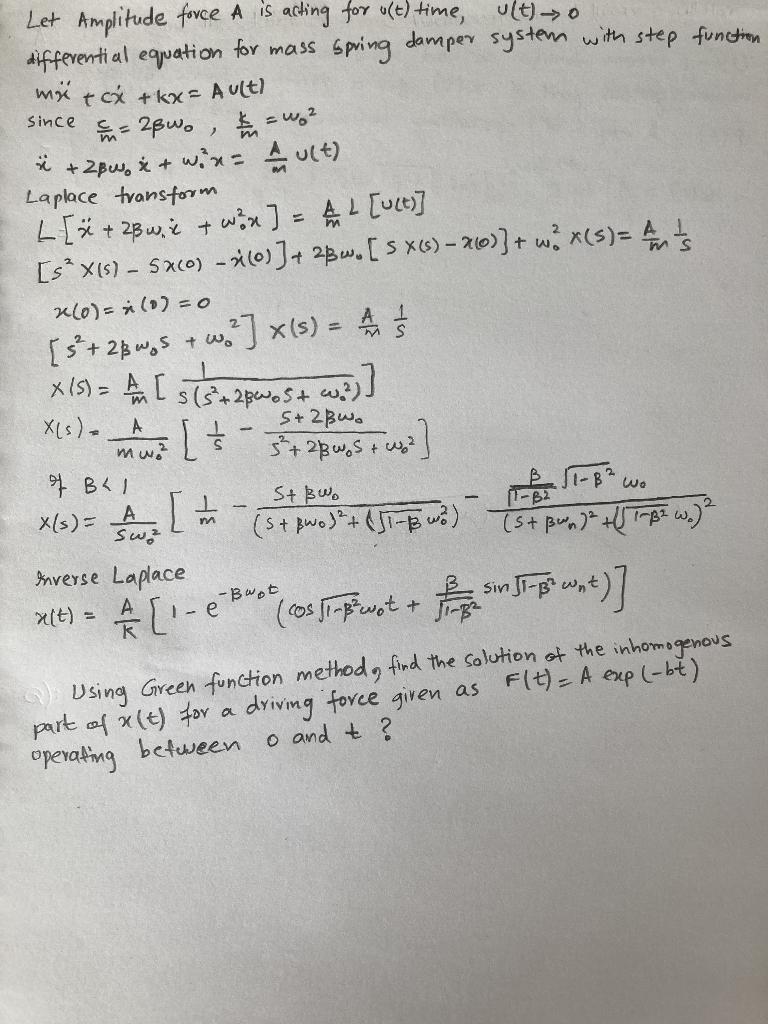 Let Amplitude force A is acting for u(t) time, u(t) → 0
differential equation for mass spring damper system with step function
mẍ + cẋ + kx = A u(t)
since c/m = 2βω₀ , k/m = ω₀²
ẍ + 2βω₀ ẋ + ω₀²x = A/m u(t)
Laplace transform
L[ẍ + 2βω₀ẋ + ω₀²x] = A/m L[u(t)]
[s² X(s) - Sx(0) - ẋ(0)] + 2βω₀[S X(s) - x(0)] + ω₀² X(s) = A/m 1/s
x(0) = ẋ(0) = 0
[s² + 2βω₀s + ω₀²] X(s) = A/m 1/s
X(s) = A/m [1/(s(s² + 2βω₀s + ω₀²))]
X(s) = A/(mω₀²) [1/s - (s + 2βω₀)/(s² + 2βω₀s + ω₀²)]
If B < 1
X(s) = A/(sω₀²) [1/m - (s + βω₀)/((s + βω₀)² + (√(1-β) ω₀²) - (β/√(1-β2) √(1-β²) ω₀)/((s + βωₙ)² + (√(1-β²) ω₀)²
Inverse Laplace
x(t) = A/K [1 - e^(-βω₀t) (cos √(1-β²)ω₀t + β/√(1-β²) sin √(1-β²) ωₙt)]
Q) Using Green function method, find the solution of the inhomogenous
part of x(t) for a driving force given as F(t) = A exp(-bt)
operating between 0 and t ?